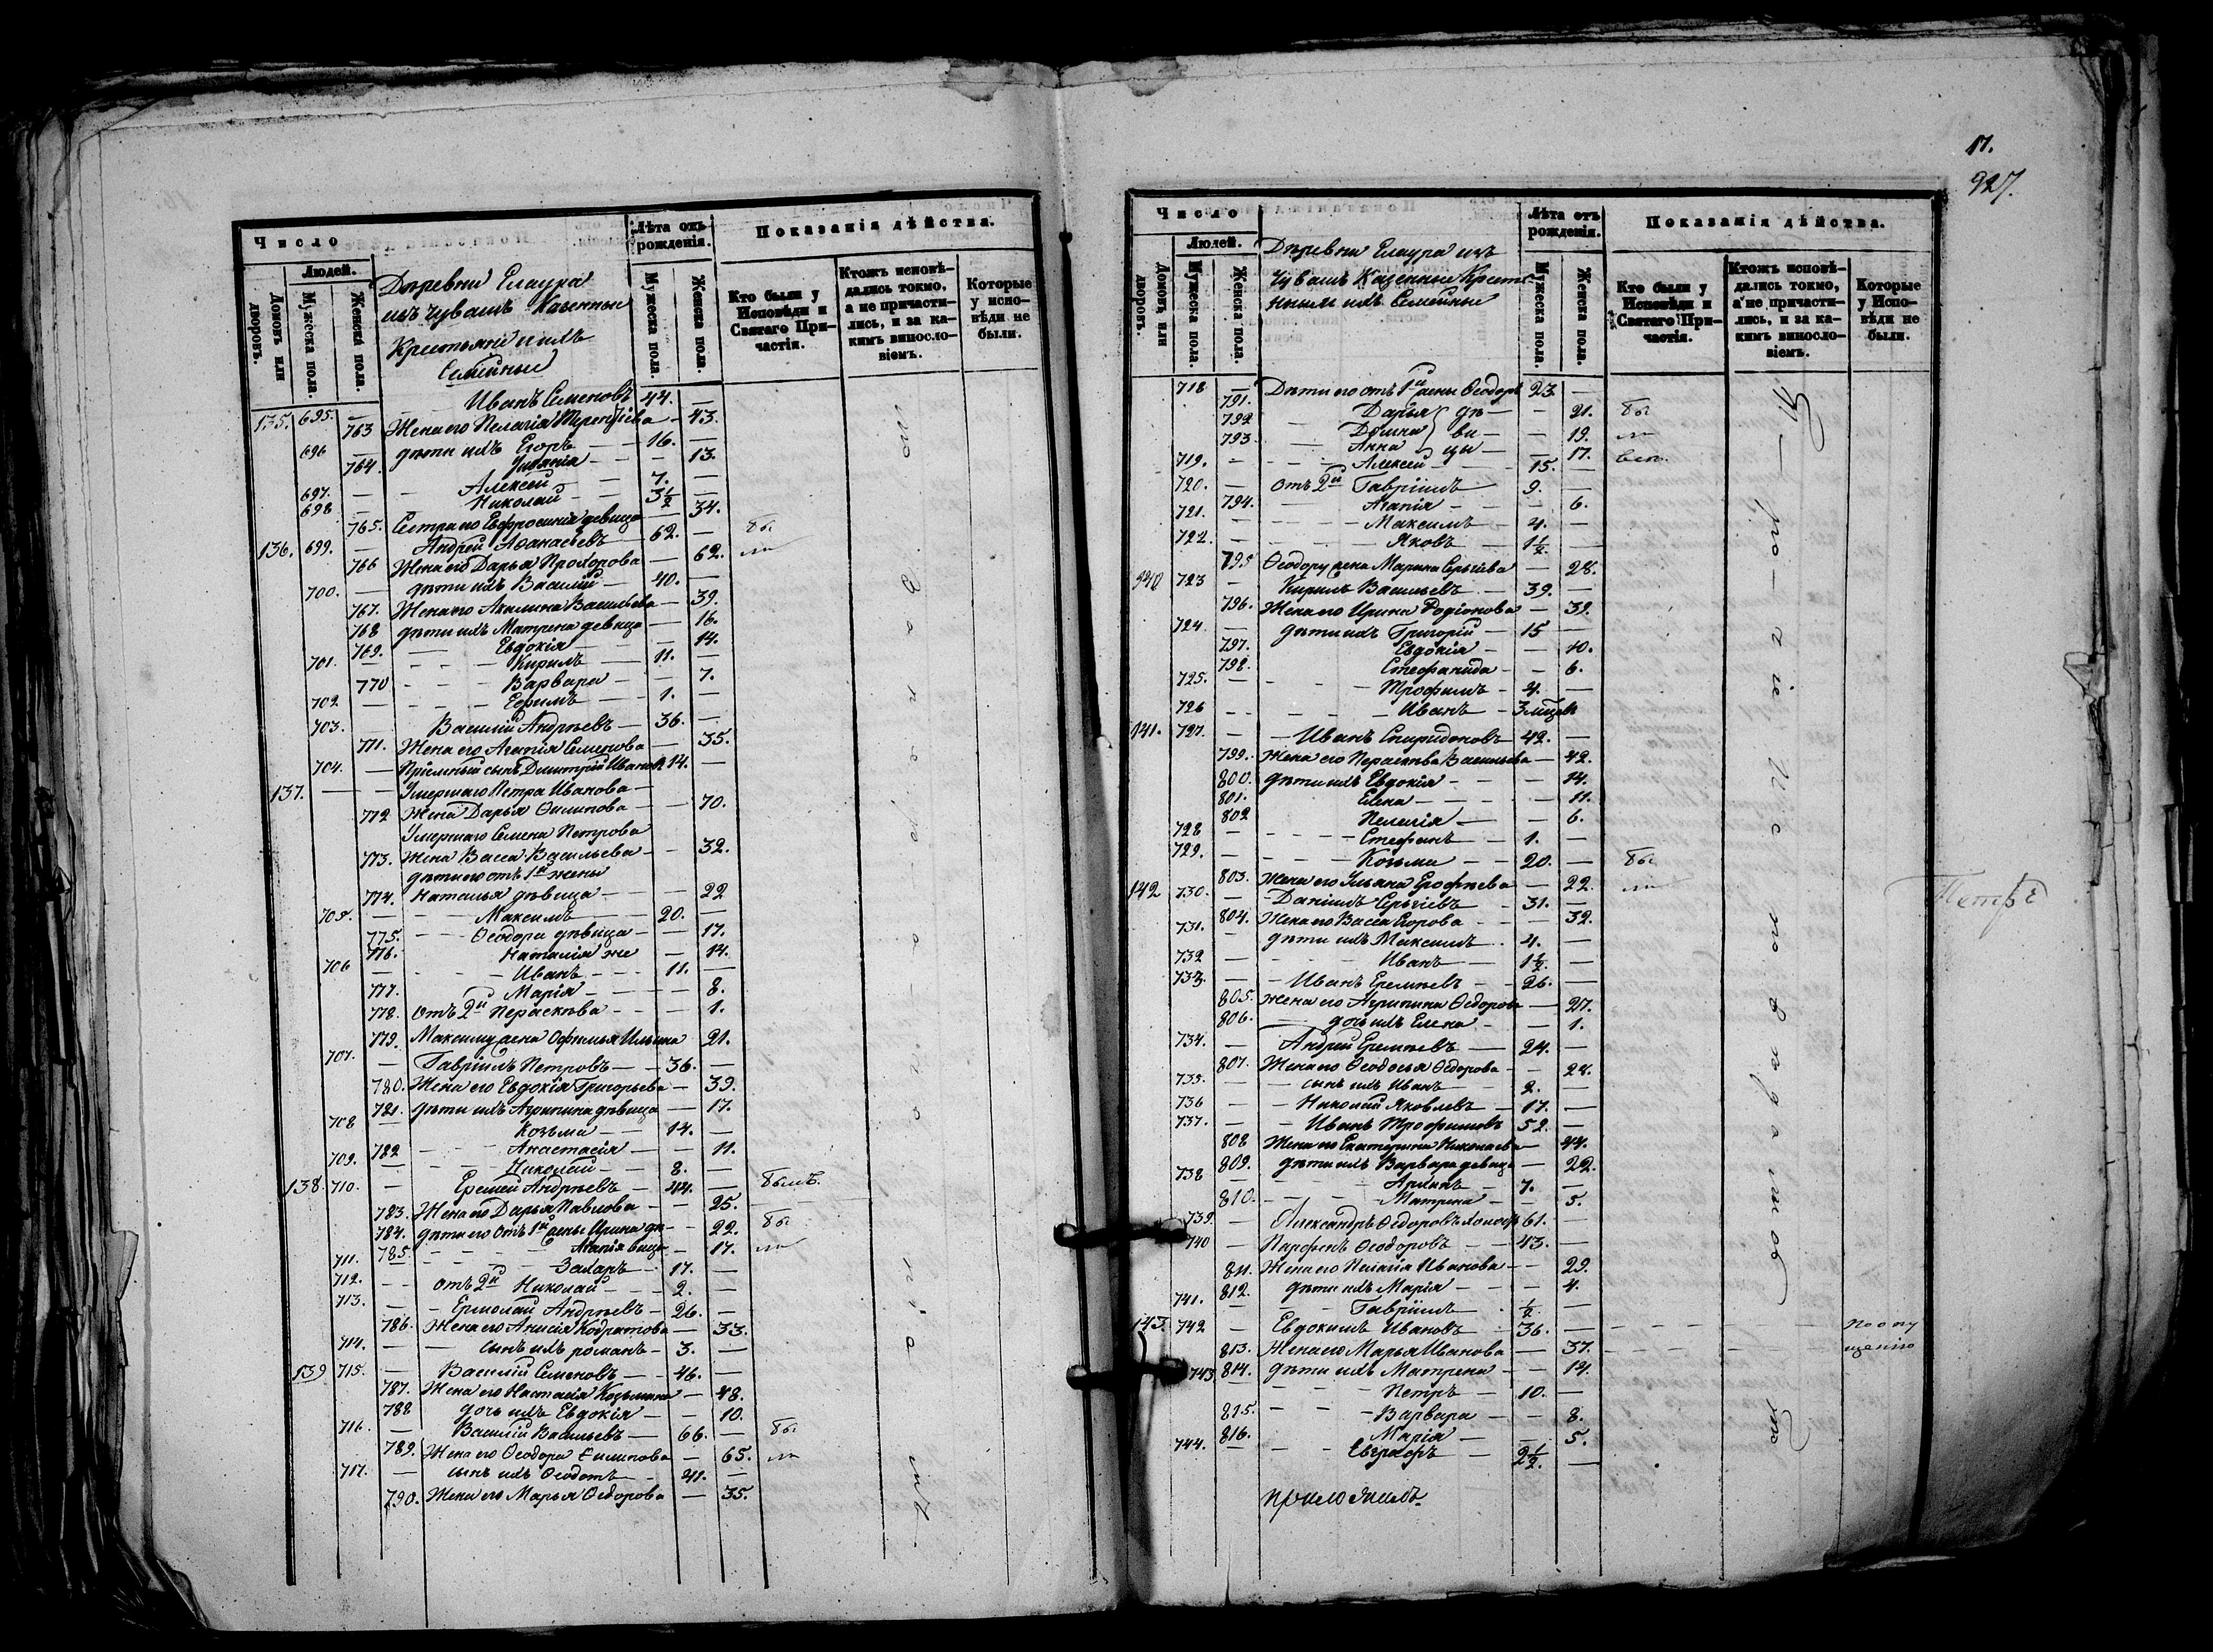 Число
Лѣта отъ рожденія.
Показанія дѣйства.
Домовъ или дворовъ.
Людей.
Мужеска пола.
Женска пола.
Деревни Елаура
изъ чувашъ Казенные
Крестьяне и ихъ
Семейные
Мужеска пола.
Женска пола.
Кто были у Исповѣди и Святаго Причастія.
Ктожъ исповѣдались токмо, а не причастились, и за какимъ винословіемъ.
Которые у исповѣди не были.
135. 695. — Иванъ Семеновъ 44. —
763 Жена его Пелагія Терентіева — 43.
696 — дѣти ихъ Егоръ — 16. —
764. — 13.
697. — Алексей — 7. —
698 — Николай — 3½ —
765. Сестра его Евфросинія девица — 34.
136. 699. — Андрей Аѳанасьевъ — 62. — бы
766 Жена его Дарья Прохорова — 62. ли
700. — дѣти ихъ Василій — 40. —
767. Жена его Акилина Васильева — 39.
768 дѣти ихъ Матрена девица — 16.
769. — Евдокія — 14.
701. — Кирилъ — 11. —
770 — Варвара — 7.
702 — Ефимъ — 1. —
703. Василій Андрѣевъ — 36. —
771. Жена его Агапія Семенова — 35.
704. — Пріемный сынъ Димитрій Ивановъ 14. —
137. — Умершаго Петра Иванова —
772 Жена Дарья Филипова — 70.
Умершаго Семена Петрова
773. Жена Васса Васильева — 32.
дѣти его отъ 1й жены
774. Наталья дѣвица — 22
705. — Максимъ — 20. —
775. — Ѳеодора дѣвица — 17.
776. Наталія же — 14.
706 — Иванъ — 11. —
777. — Марія — 8.
778. отъ 2й Пераскева — 1.
779. Максиму жена Офимья Ильина 21.
707. — Гавріилъ Петровъ — 36. —
780. Жена его Евдокія Григорьева — 39.
781. дѣти ихъ Агрипина дѣвица — 17.
708 — Козьма — 14. —
782 — Анастасія — 11.
709. — Николай — 8. —
138. 710. — Еремей Андрѣевъ — 44. — былъ.
783. Жена его Дарья Павлова — 25.
784. дѣти его отъ 1й жены Ирина дѣ — 22. бы
785 — Агапія вицы — 17. ли
711. — Захаръ — 17. —
712. — отъ 2й Николай — 2. —
713. — Ермолай Андрѣевъ — 26. —
786. Жена его Анисія Кодратова — 33.
714. — сынъ ихъ романъ — 3. —
139 715. — Василій Семеновъ — 46. —
787. Жена его Настасія Козьмина — 48.
788 дочь ихъ Евдокія — 10.
716. — Василій Васильевъ — 66. — бы
789. Жена его Ѳеодора Филипова — 65. ли
717. — сынъ ихъ Ѳеодотъ — 41. —
790. Жена его Марья Ѳедорова — 35.
17.
927.
Число
Лѣта отъ рожденія.
Показанія дѣйства.
Домовъ или дворовъ.
Людей.
Мужеска пола.
Женска пола.
Деревни Елаура изъ
чувашъ Казенные Крестья
Семейные
Мужеска пола.
Женска пола.
Кто были у Исповѣди и Святаго Причастія.
Ктожъ исповѣдались токмо, а не причастились, и за какимъ винословіемъ.
Которые у Исповѣди не были.
718 — Дѣти его отъ 1й жены Ѳеодоръ 23. —
791. Дарья дѣ — 21. бы
792 — ви — 19. ли
793. — Анна цы — 17. всѣ.
719. — Алексей — 15. —
720. — отъ 2й Гавріилъ 9. —
794. Агапія — 6.
721. — Максимъ — 4. —
722. — Яковъ — 1½ —
795 Ѳеодору жена Марина Сергіева — 28.
140 723 — Кирилъ Васильевъ — 39. —
796. Жена его Ирина Родіонова — 39.
724. — дѣти ихъ Григорій — 15 —
797. Евдокія — 10.
798. Стефанида — 6.
725. — Трофимъ — 4. —
726 — Иванъ — 3 мѣсяц
141. 727. — Иванъ Спиридоновъ 42. —
799. Жена его Пераскева Васильева — 42.
800. дѣти ихъ Евдокія — 14.
801. Елена — 11.
802 Пелагія — 6.
728 — Стефанъ — 1. —
729. — Козьма — 20. — бы
803. Жена его Ульяна Ерофѣева — 22. ли
142 730. — Даніилъ Сергіевъ 31. —
804. Жена его Васса Егорова — 32.
731. — дѣти ихъ Максимъ. 4. —
732 — Иванъ — 1½. —
733. — Иванъ Еремѣевъ — 26. —
805. Жена его Агрипина Ѳедорова — 27.
806. — дочь ихъ Елена — 1.
734. — Андрей Еремѣевъ — 24. —
807. Жена его Ѳеодосья Ѳедорова — 24.
735. — сынъ ихъ Иванъ — 2. —
736 — Николай Яковлевъ — 17. —
737. — Иванъ Трофимовъ 52. —
808 Жена его Екатерина Николаева — 44.
809. дѣти ихъ Варвара девица — 22.
738 — 7. —
810. — Матрена — 5.
739. — Александръ Ѳедоровъ 61. —
740 — Парфенъ Ѳеодоровъ — 43. —
811. Жена его Пелагія Иванова — 29.
812. дѣти ихъ Марія — 4.
741. — Гавріилъ — ½. —
143. 742 — Евдокимъ Ивановъ 36. — по опу
813. Жена его Марья Иванова — 37. щенію
814. дѣти ихъ Матрена — 14.
743 — Петръ — 10. —
815. — Варвара — 8.
816. — Марія — 5.
744. — Евграфъ — 2½. —